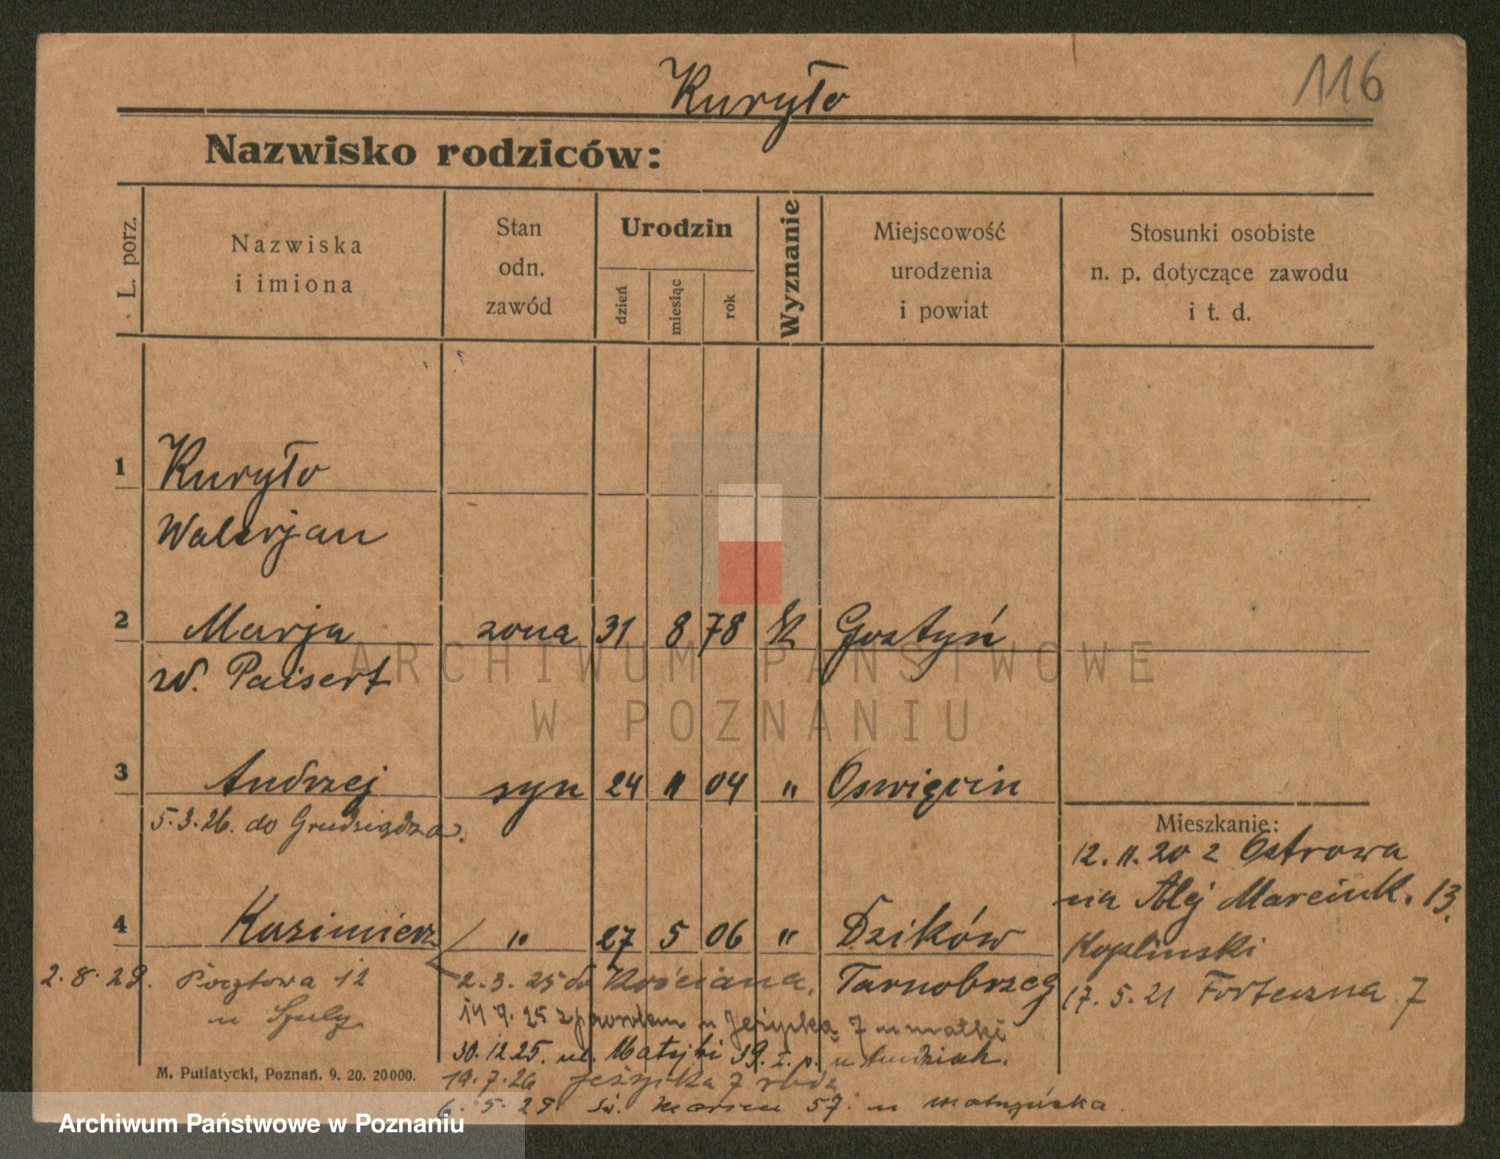 116
Kuryło
Nazwisko rodziców:
L. porz.
Nazwiska
i imiona
Stan
odn.
zawód
Urodzin
dzień
miesiąc
rok
Wyznanie
Miejscowość
urodzenia
i powiat
Stosunki osobiste
n. p. dotyczące zawodu
i t. d.
1 Kuryło
Walerjan
2 Marja zona 31 8 78 K Gostyń
zd. Paisert
3 Andrzej syn 24 11 04 " Oswięcin
5.3.26. do Grudziądza.
Mieszkanie:
12. 11. 20 z Ostrowa
na Alej Marcink. 13.
4 Kazimierz / " 27 5 06 " Dzików
Koplinski
2.8.29. Pocztowa 12 2.3.25 do Kościana, Tarnobrzeg
17. 5. 21 Forteczna 7
u
25 z powrotem u Jeżycka 7 u matki
30.12.25. ul. Matejki 39. I. p. u
19.7.26 Jeżycka 7
6. 5. 29 Św. Marcin 57. u
M. Putiatycki, Poznań. 9. 20. 20000.
ARCHIWUM PAŃSTWOWE
W POZNANIU
Archiwum Państwowe w Poznaniu